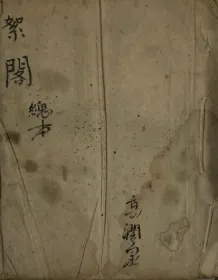 絮閣
總本
高潤堂